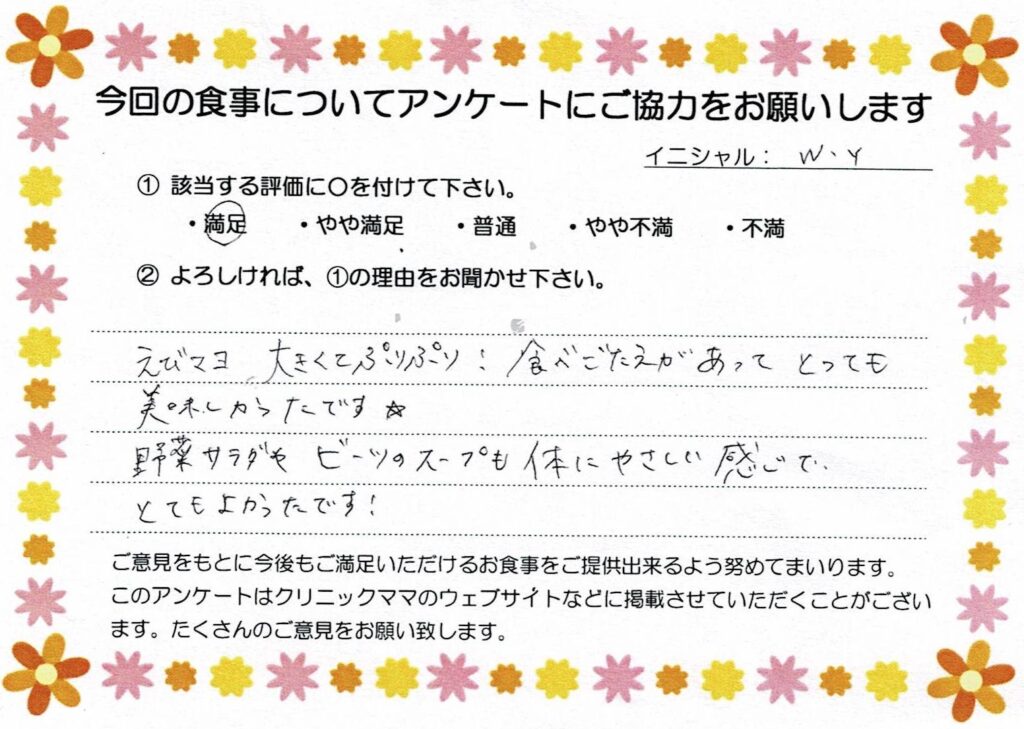 今回の食事についてアンケートにご協力をお願いします
イニシャル： W.Y
① 該当する評価に○を付けて下さい。
・満足 ・やや満足 ・普通 ・やや不満 ・不満
② よろしければ、①の理由をお聞かせ下さい。
えびマヨ 大きくてぷりぷり！食べごたえがあって とっても
美味しかったです☆
野菜サラダや ビーツのスープも 体に やさしい 感じで、
とてもよかったです！
ご意見をもとに今後もご満足いただけるお食事をご提供出来るよう努めてまいります。
このアンケートはクリニックママのウェブサイトなどに掲載させていただくことがござい
ます。たくさんのご意見をお願い致します。